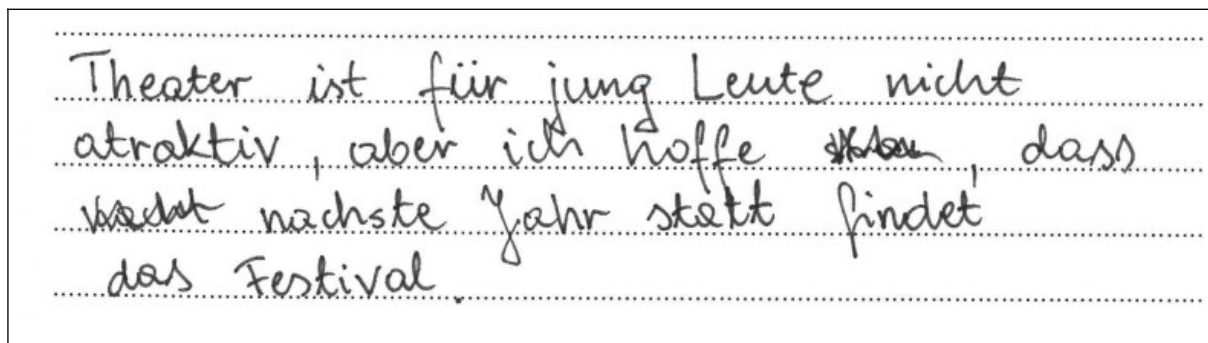 Theater ist für jung Leute nicht
atraktiv, aber ich hoffe, dass
nachste Jahr statt findet
das Festival.